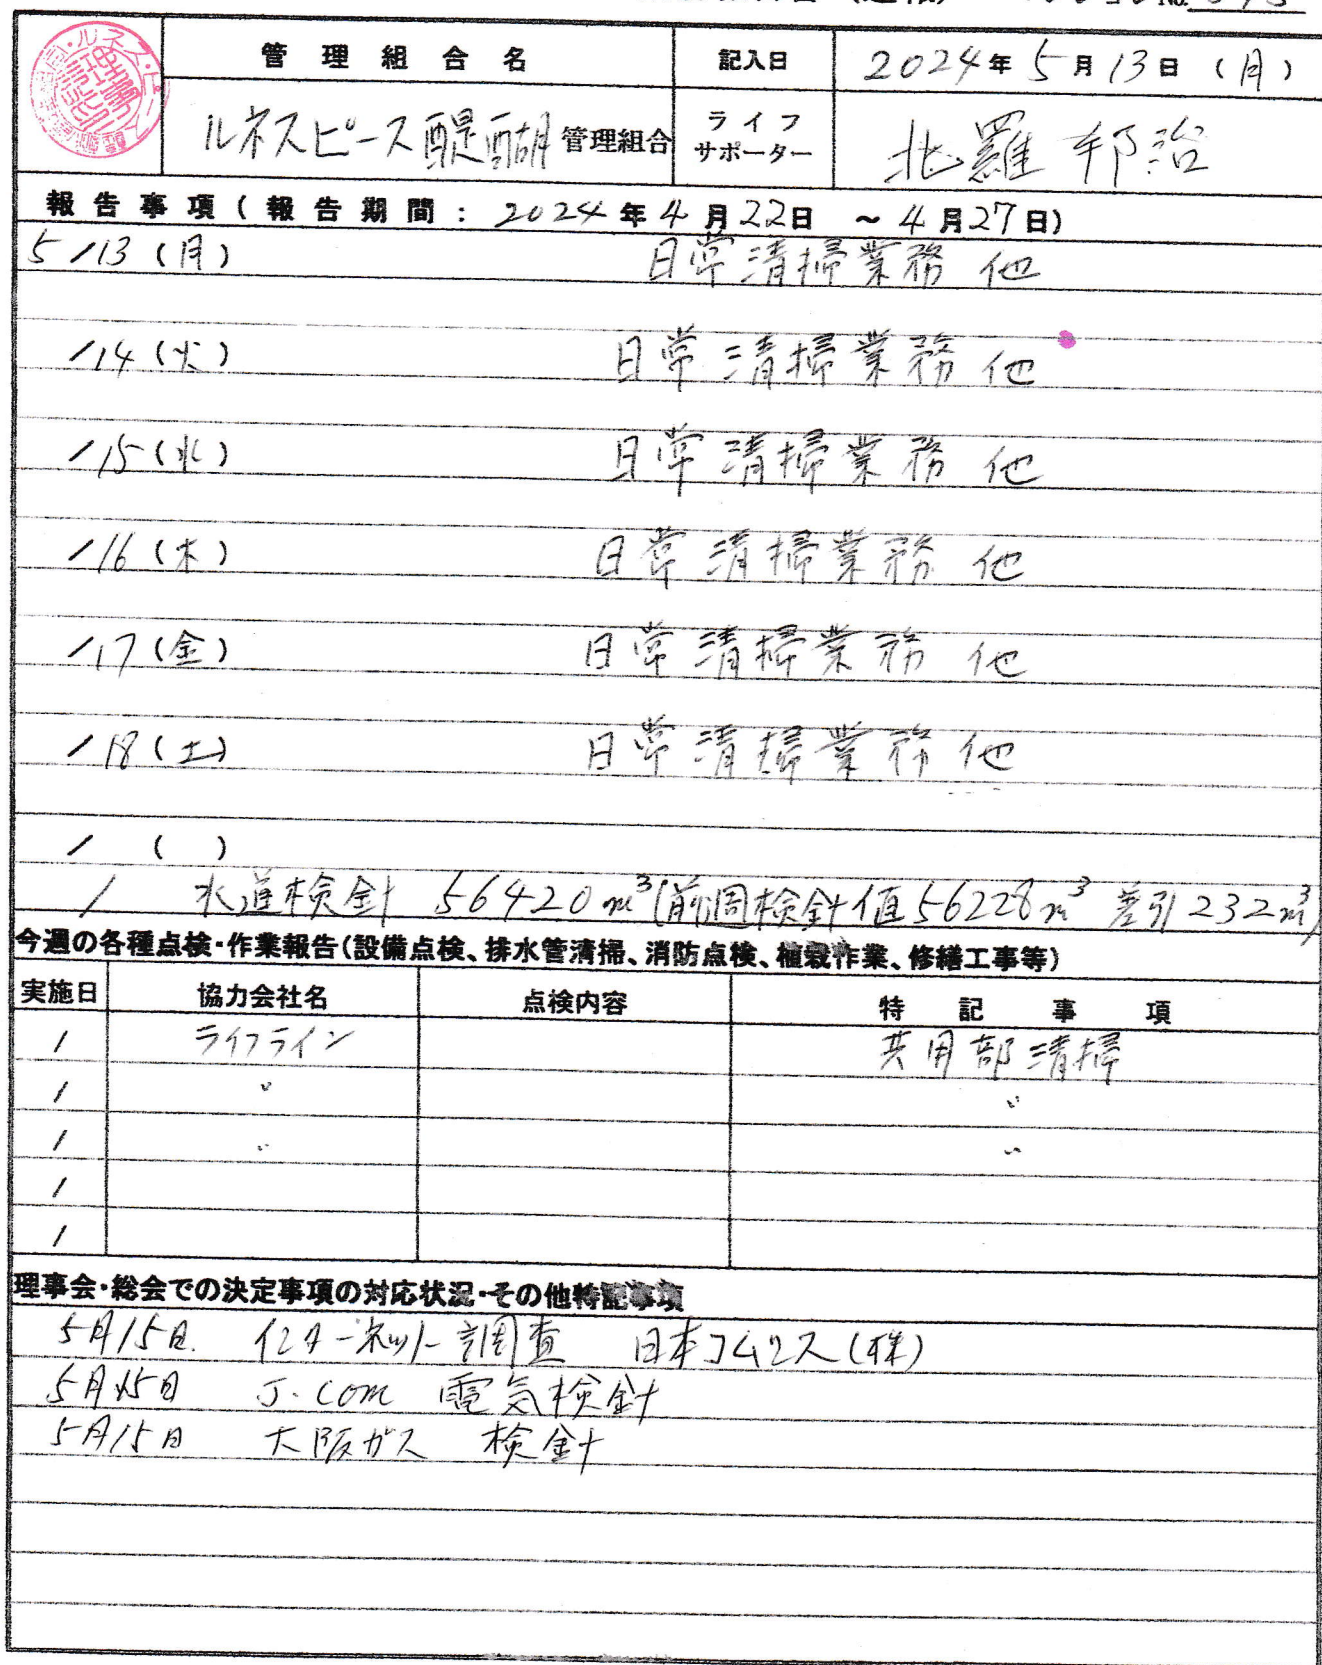 管理組合名 記入日 2024年5月13日(月)
ルネスピース醍醐管理組合 ライフサポーター 北羅 邦治
報告事項(報告期間:2024年4月22日 ~4月27日)
5/13(月) 日常清掃業務他
/14(火) 日常清掃業務他
/15(水) 日常清掃業務他
/16(木) 日常清掃業務他
/17(金) 日常清掃業務他
/18(土) 日常清掃業務他
/ ( )
/ 水道検針 56420m³(前週検針値56228m³ 差引232m³)
今週の各種点検・作業報告(設備点検、排水管清掃、消防点検、植栽作業、修繕工事等)
実施日 協力会社名 点検内容 特記事項
/ ライフライン 共用部清掃
/ 〃 〃
/ 〃 〃
/
/
理事会・総会での決定事項の対応状況・その他特記事項
5月15日 インターネット調査 日本コムシス(株)
5月15日 J.COM 電気検針
5月15日 大阪ガス 検針